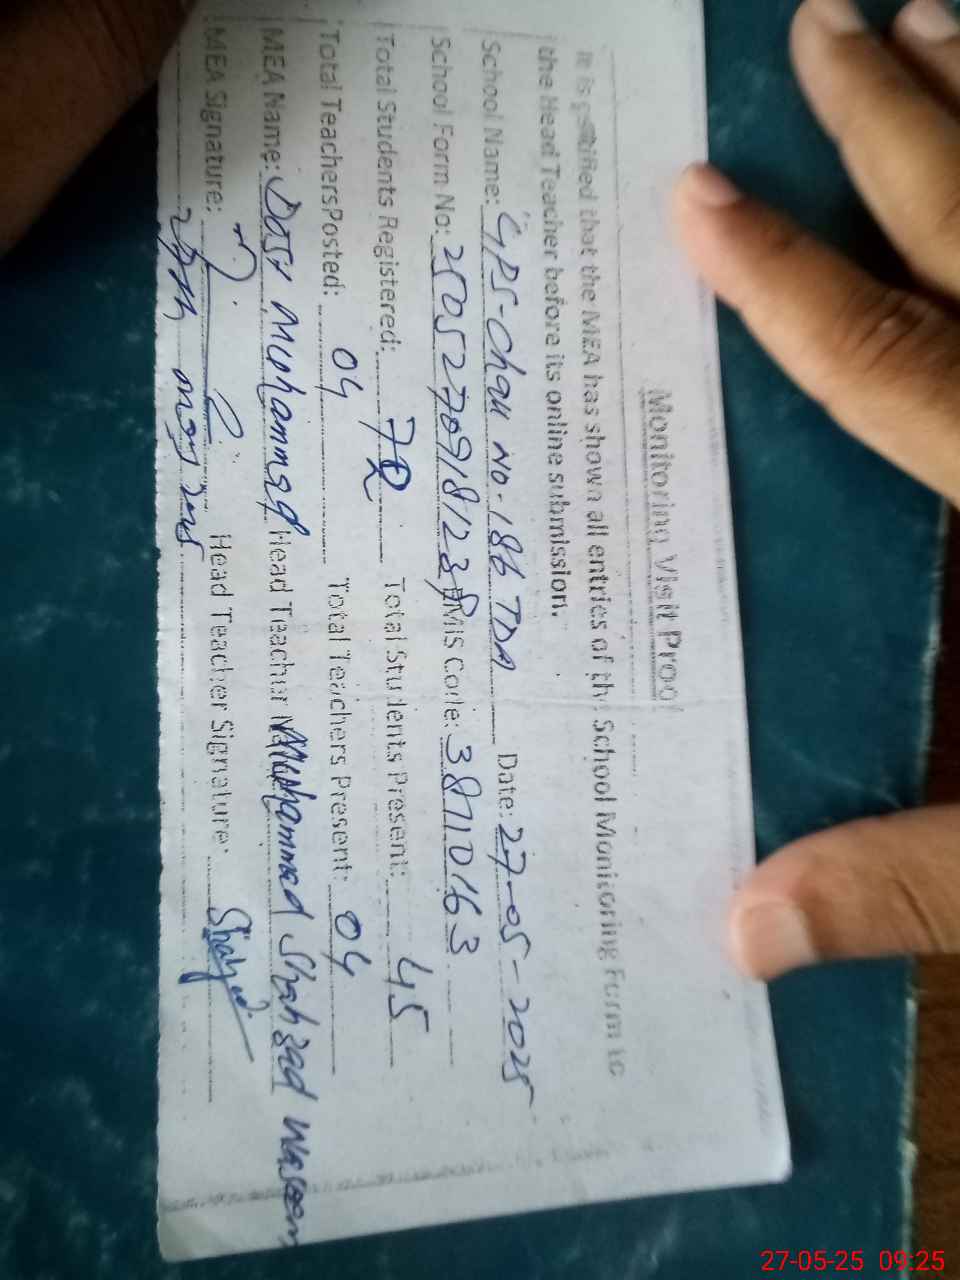 Monitoring Visit Proof
It is certified that the MEA has shown all entries of the School Monitoring Form to
the Head Teacher before its online submission.
School Name: GPS-Chak NO-186 TDA Date: 27-05-2025
School Form No: EMIS Code: 38710163
Total Students Registered: Total Students Present: 45
Total TeachersPosted: 04 Total Teachers Present: 04
MEA Name: Muhammad Head Teacher Muhammad Shahzad Waseem
MEA Signature: Head Teacher Signature: Shahzad
27-05-25 09:25